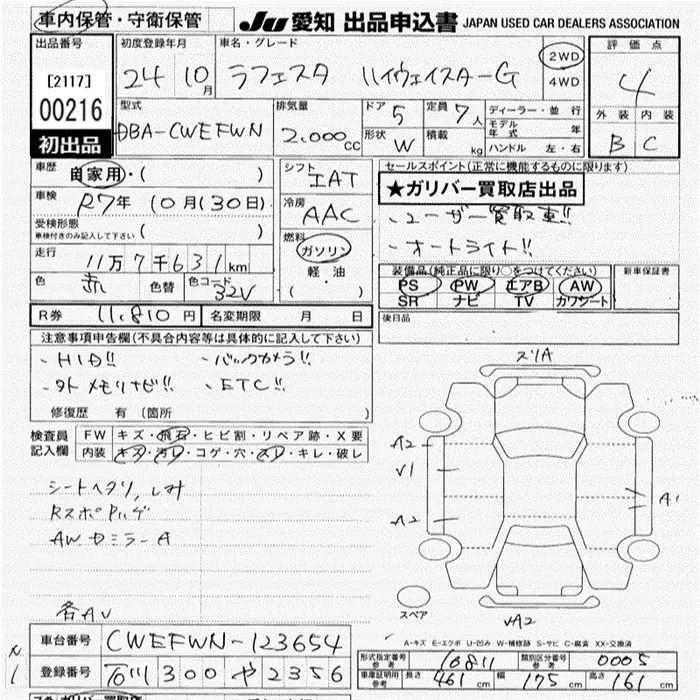 車内保管・守衛保管 Ju 愛知 出品申込書 JAPAN USED CAR DEALERS ASSOCIATION
出品番号 初度登録年月 車名・グレード 評価点
[2117] 24 10月 ラフェスタ ハイウェイスターG 2WD 4WD 4
00216 型式 排気量 ドア 5 定員 7人 ディーラー・並行 外装 内装
初出品 DBA-CWEFWN 2.000cc 形状 W 積載 kg モデル年式 年 B C
ハンドル 左・右
車歴 自家用・( ) シフト IAT セールスポイント(正常に機能するものに限ります)
車検 R7年 10月(30日) 冷房 AAC ★ガリバー買取店出品
受検形態 ( ) - ユーザー買取車!!
車検付きのみ記入して下さい 燃料 ガソリン - オートライト!!
走行 11万7千631km 軽油 装備品(純正品に限り○をつけてください) 新車保証書
色 赤 色替 色コード 32V ( ) PS PW エアB AW
SR ナビ TV カワシート
R券 11,810円 名変期限 月 日 後日品
注意事項申告欄(不具合内容等は具体的に記入して下さい)
- HID!! - バックカメラ!!
- 外 メモリナビ!! - ETC!!
修復歴 有 (箇所 )
検査員記入欄 FW キズ・飛石・ヒビ割・リペア跡・X要
内装 キズ・汚レ・コゲ・穴・スレ・キレ・破レ
スリA
A2
V1
A1
A2
シートヘタリ,シミ
AWセミラーA
各AV
スペア
VA2
A-キズ E-エクボ U-凹み W-補修跡 S-サビ C-腐食 XX-交換済
車台番号 CWEFWN-123654 形式指定番号 参考 10811 類別区分番号 参考 0005
登録番号 石川 300 や 2356 車庫証明用 参考 長さ 461cm 幅 175cm 高さ 161cm